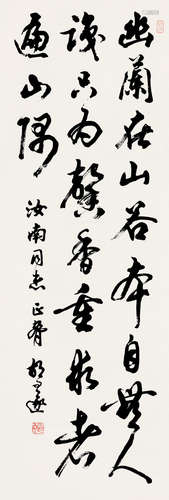 幽蘭在山谷本自無人
識只為馨香重求者
遍山隅
汝南同志正腕 胡問遂